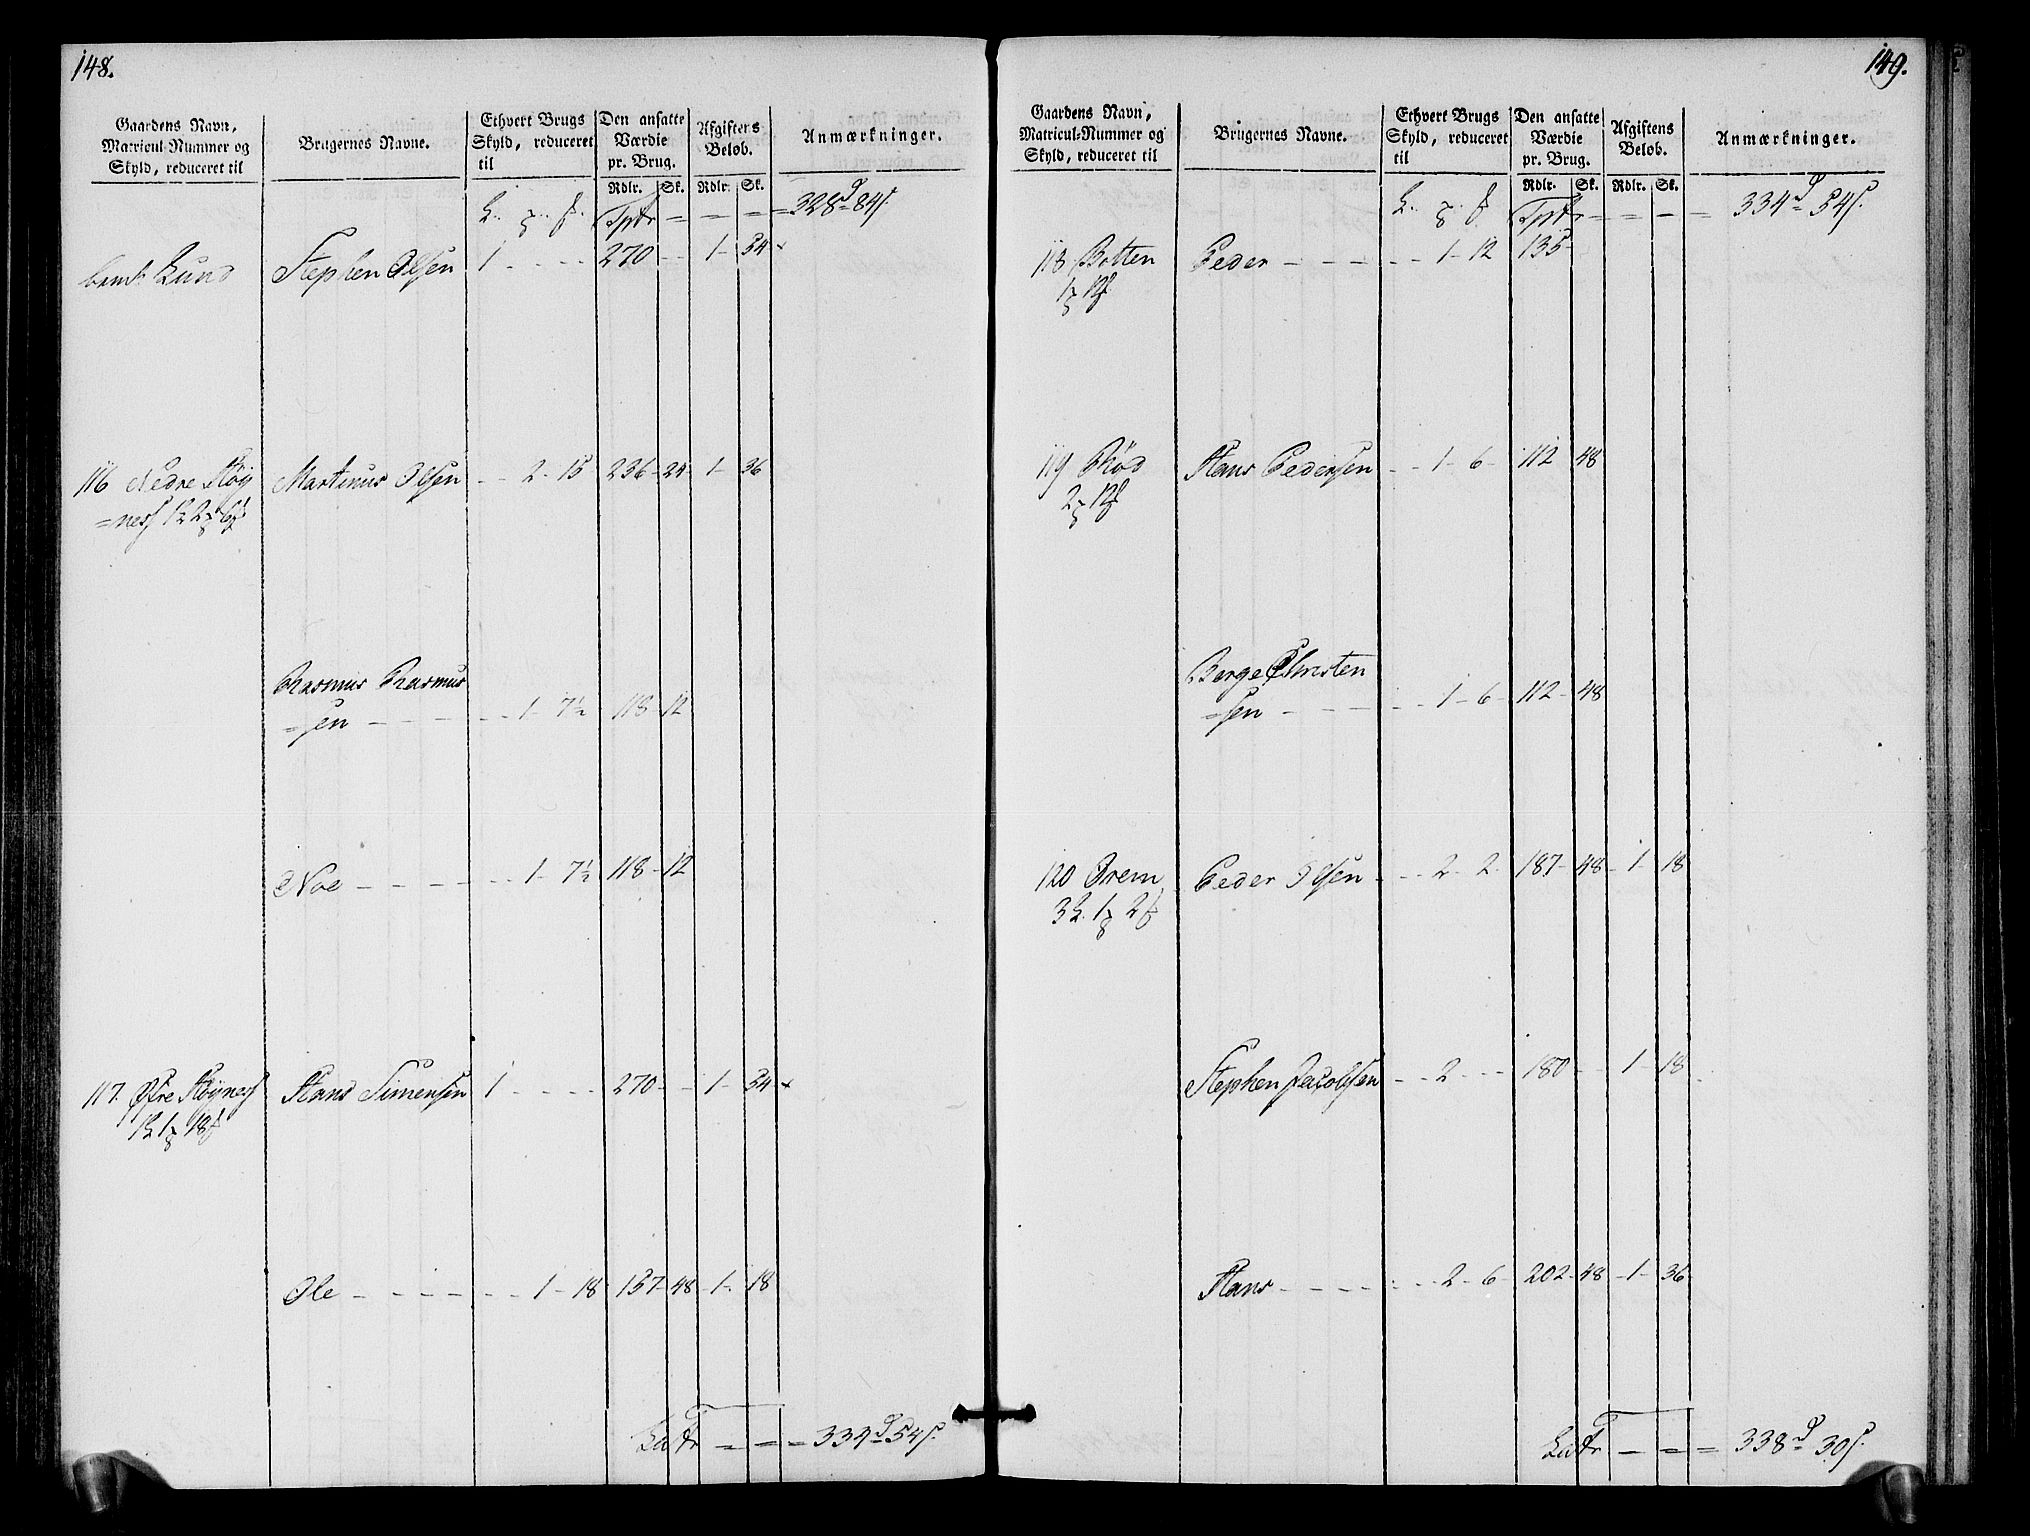 148.
Gaardens Navn, Matricul-Nummer og Skyld, reduceret til
Brugernes Navne.
Ethvert Brugs Skyld, reduceret til
Den ansatte Værdie pr. Brug.
Afgiftens Beløb.
Anmærkninger.
Rdlr. Sk. Rdlr. Sk.
Tptr = = = = 328 84
Lund Stephen Olsen 1 - - - 270 - - 1 - 54
116 Nedre Høy Martinus Olsen - - 2 - 15 236 - 24 - 1 - 36
=ness 1 2 6
Rasmus Rasmus
=sen - - - - - 1 - 7½ 118 - 12
Noe - - - - - 1 - 7½ 118 - 12
117. Øfre Høyness Hans Simensen 1 - - - 270 - - 1 - 54
1 1 18
Ole - - - - - - 1 - 18 157 - 48 - 1 - 18
Latr = = = 334 54
149.
Gaardens Navn, Matricul-Nummer og Skyld, reduceret til
Brugernes Navne.
Ethvert Brugs Skyld, reduceret til
Den ansatte Værdie pr. Brug.
Afgiftens Beløb.
Anmærkninger.
Rdlr. Sk. Rdlr. Sk.
Tptr = = = = 334 54
118 Botten Peder - - - - - 1 - 12 135 -
1 12
119 Rød Hans Pedersen - - 1 - 6 - 112 48
2 12
Berge Christen
=sen - - - - - 1 - 6 - 112 - 48
120 Orem Peder Olsen - - - 2 - 2 - 187 - 48 - 1 - 18
3 1 2
Stephen Jacobsen - - 2 - - - 180 - - 1 - 18
Hans - - - - - - 2 - 6 - 202 - 48 - 1 - 36
Latr = = = 338 30